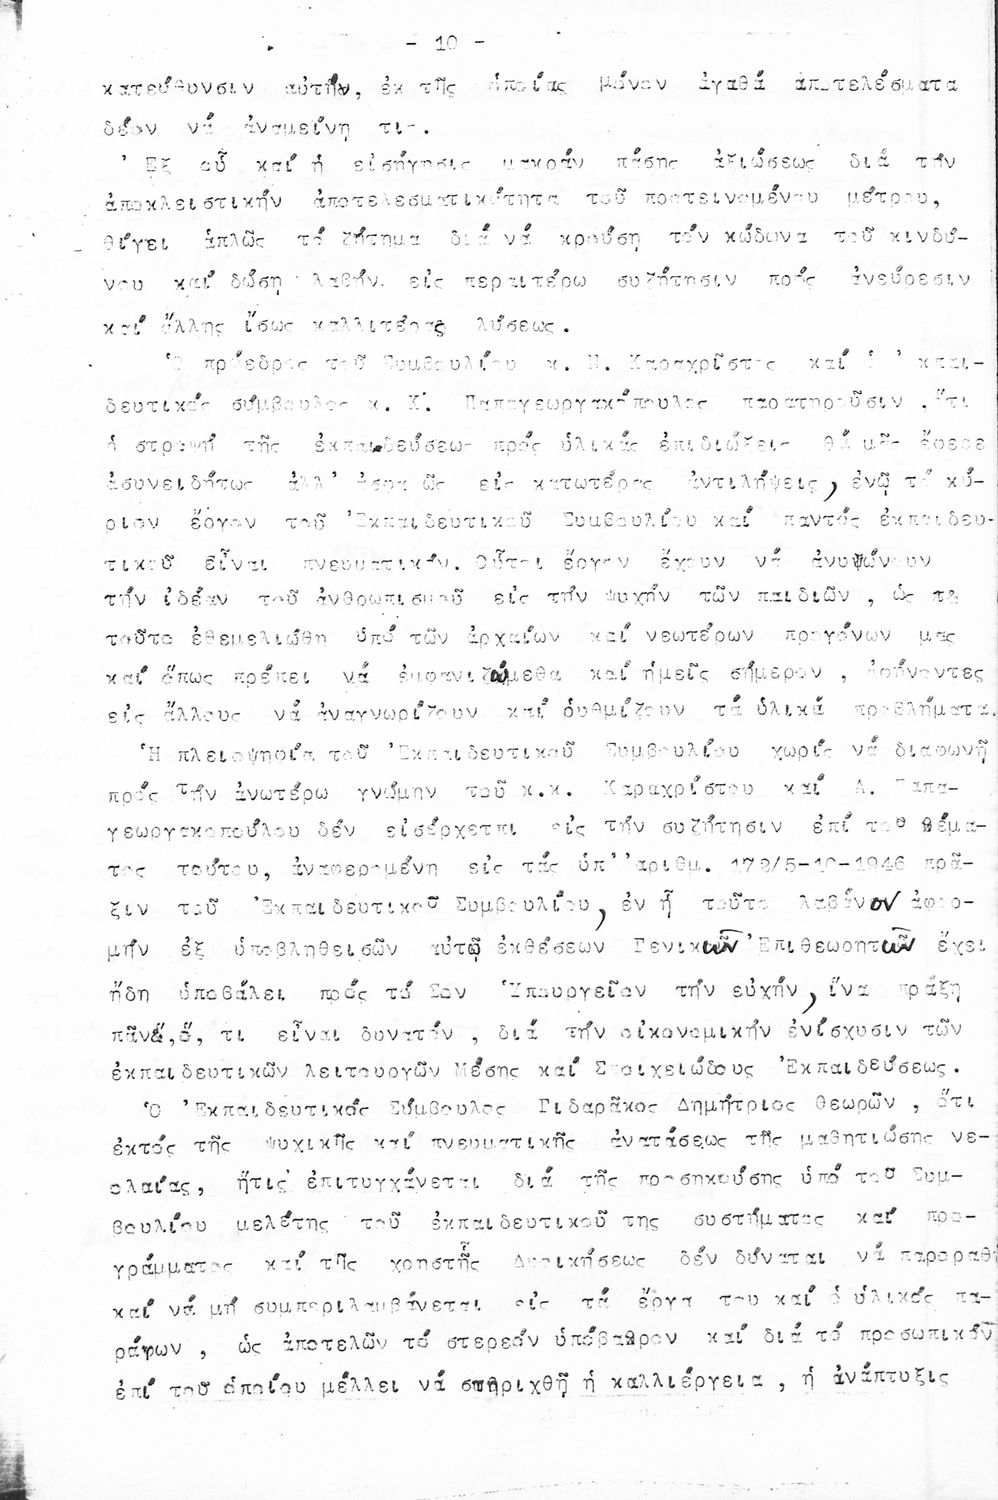 - 10 -
κατεύθυνσιν αὐτήν, ἐκ τῆς ὁποίας μόνον ἀγαθά ἀποτελέσματα
δέον νά ἀναμείνη τις.
'Εξ οὗ καί ἡ εἰσήγησις μακράν πάσης ἀξιώσεως διά τήν
ἀποκλειστικήν ἀποτελεσματικότητα τοῦ προτεινομένου μέτρου,
θίγει ἁπλῶς τό ζήτημα διά νά κρούση τόν κώδωνα τοῦ κινδύ-
νου καί δώση λαβήν εἰς περαιτέρω συζήτησιν πρός ἀνεύρεσιν
καί ἄλλης ἴσως καλλιτέρας λύσεως.
Ὁ πρόεδρος τοῦ Συμβουλίου κ. Ν. Καραχρῖστος καί ὁ 'κπαι-
δευτικός σύμβουλος κ. Κ. Παπαγεωργακόπουλος παρατηροῦσιν , ὅτι
ἡ στροφή τῆς ἐκπαιδεύσεως πρός ὑλικάς ἐπιδιώξεις θά μᾶς ἔφερε
ἀσυνειδήτως ἀλλ' ἀσφαλῶς εἰς κατωτέρας ἀντιλήψεις, ἐνῷ τό κύ-
ριον ἔργον τοῦ 'Εκπαιδευτικοῦ Συμβουλίου καί παντός ἐκπαιδευ-
τικοῦ εἶναι πνευματικόν. Οὗτοι ἔργον ἔχουν νά ἀνυψώνουν
τήν ἰδέαν τοῦ ἀνθρωπισμοῦ εἰς τήν ψυχήν τῶν παιδιῶν , ὡς
τοῦτο ἐθεμελιώθη ὑπό τῶν ἀρχαίων καί νεωτέρων προγόνων μας
καί ὅπως πρέπει νά ἐμφανιζώμεθα καί ἡμεῖς σήμερον , ἀφήνοντες
εἰς ἄλλους νά ἀναγνωρίζουν καί ρυθμίζουν τά ὑλικά προβλήματα.
Ἡ πλειοψηφία τοῦ 'Εκπαιδευτικοῦ Συμβουλίου χωρίς νά διαφωνῆ
πρός τήν ἀνωτέρω γνώμην τοῦ κ.κ. Καραχρίστου καί Παπα-
γεωργακοπούλου δέν εἰσέρχεται εἰς τήν συζήτησιν ἐπί τοῦ θέμα-
τος τούτου, ἀναφερομένη εἰς τάς ὑπ' 'αριθμ. 172/5-10-1946 πρᾶ-
ξιν τοῦ 'Εκπαιδευτικοῦ Συμβουλίου, ἐν ἧ τοῦτο λαβόνον ἀφορ-
μήν ἐξ ὑποβληθεισῶν αὐτῷ ἐκθέσεων Γενικῶν 'Επιθεωρητῶν ἔχει
ἤδη ὑποβάλει πρός τό Σον Ὑπουργεῖον τήν εὐχήν, ἵνα πράξη
πᾶν ὅ, τι εἶναι δυνατόν , διά τήν οἰκονομικήν ἐνίσχυσιν τῶν
ἐκπαιδευτικῶν λειτουργῶν Μέσης καί Στοιχειώδους 'Εκπαιδεύσεως.
Ὁ 'Εκπαιδευτικός Σύμβουλος Γιδαρᾶκος Δημήτριος θεωρῶν , ὅτι
ἐκτός τῆς ψυχικῆς καί πνευματικῆς ἀνατάσεως τῆς μαθητιώσης νε-
ολαίας, ἥτις ἐπιτυγχάνεται διά τῆς προσηκούσης ὑπό τοῦ Συμ-
βουλίου μελέτης τοῦ ἐκπαιδευτικοῦ της συστήματος καί προ-
γράμματος καί τῆς χρηστῆς Διοικήσεως δέν δύναται νά παροραθῆ
καί νά μή συμπεριλαμβάνεται εἰς τά ἔργα του καί ὁ ὑλικός πα-
ράγων , ὡς ἀποτελῶν τό στερεόν ὑπόβαθρον καί διά τό προσωπικόν
ἐπί τοῦ ὁποίου μέλλει νά στηριχθῇ ἡ καλλιέργεια , ἡ ἀνάπτυξις